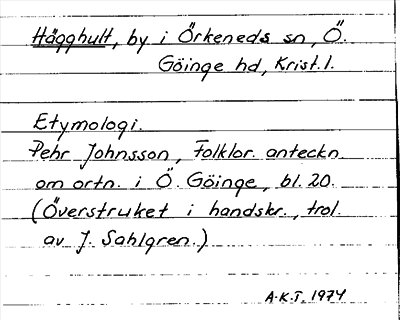 Hägghult, by i Örkeneds sn, Ö.
Göinge hd, Krist. l.
Etymologi.
Pehr Johnsson, Folklor. anteckn.
om ortn. i Ö. Göinge, bl. 20.
(Överstruket i handskr., trol.
av J. Sahlgren.)
A.K.T. 1974